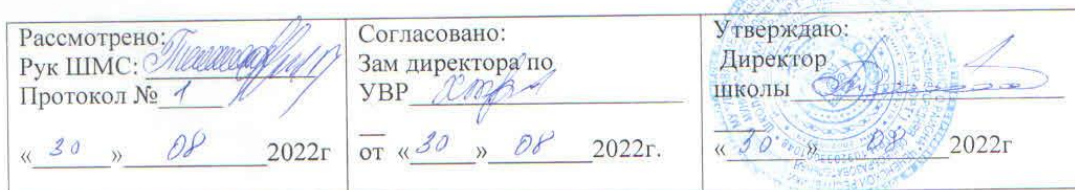 Рассмотрено:
Рук ШМС:
Протокол № 1
« 30 » 08 2022г
Согласовано:
Зам директора по
УВР
от «30 » 08 2022г.
Утверждаю:
Директор
школы
« 30 » 08 2022г